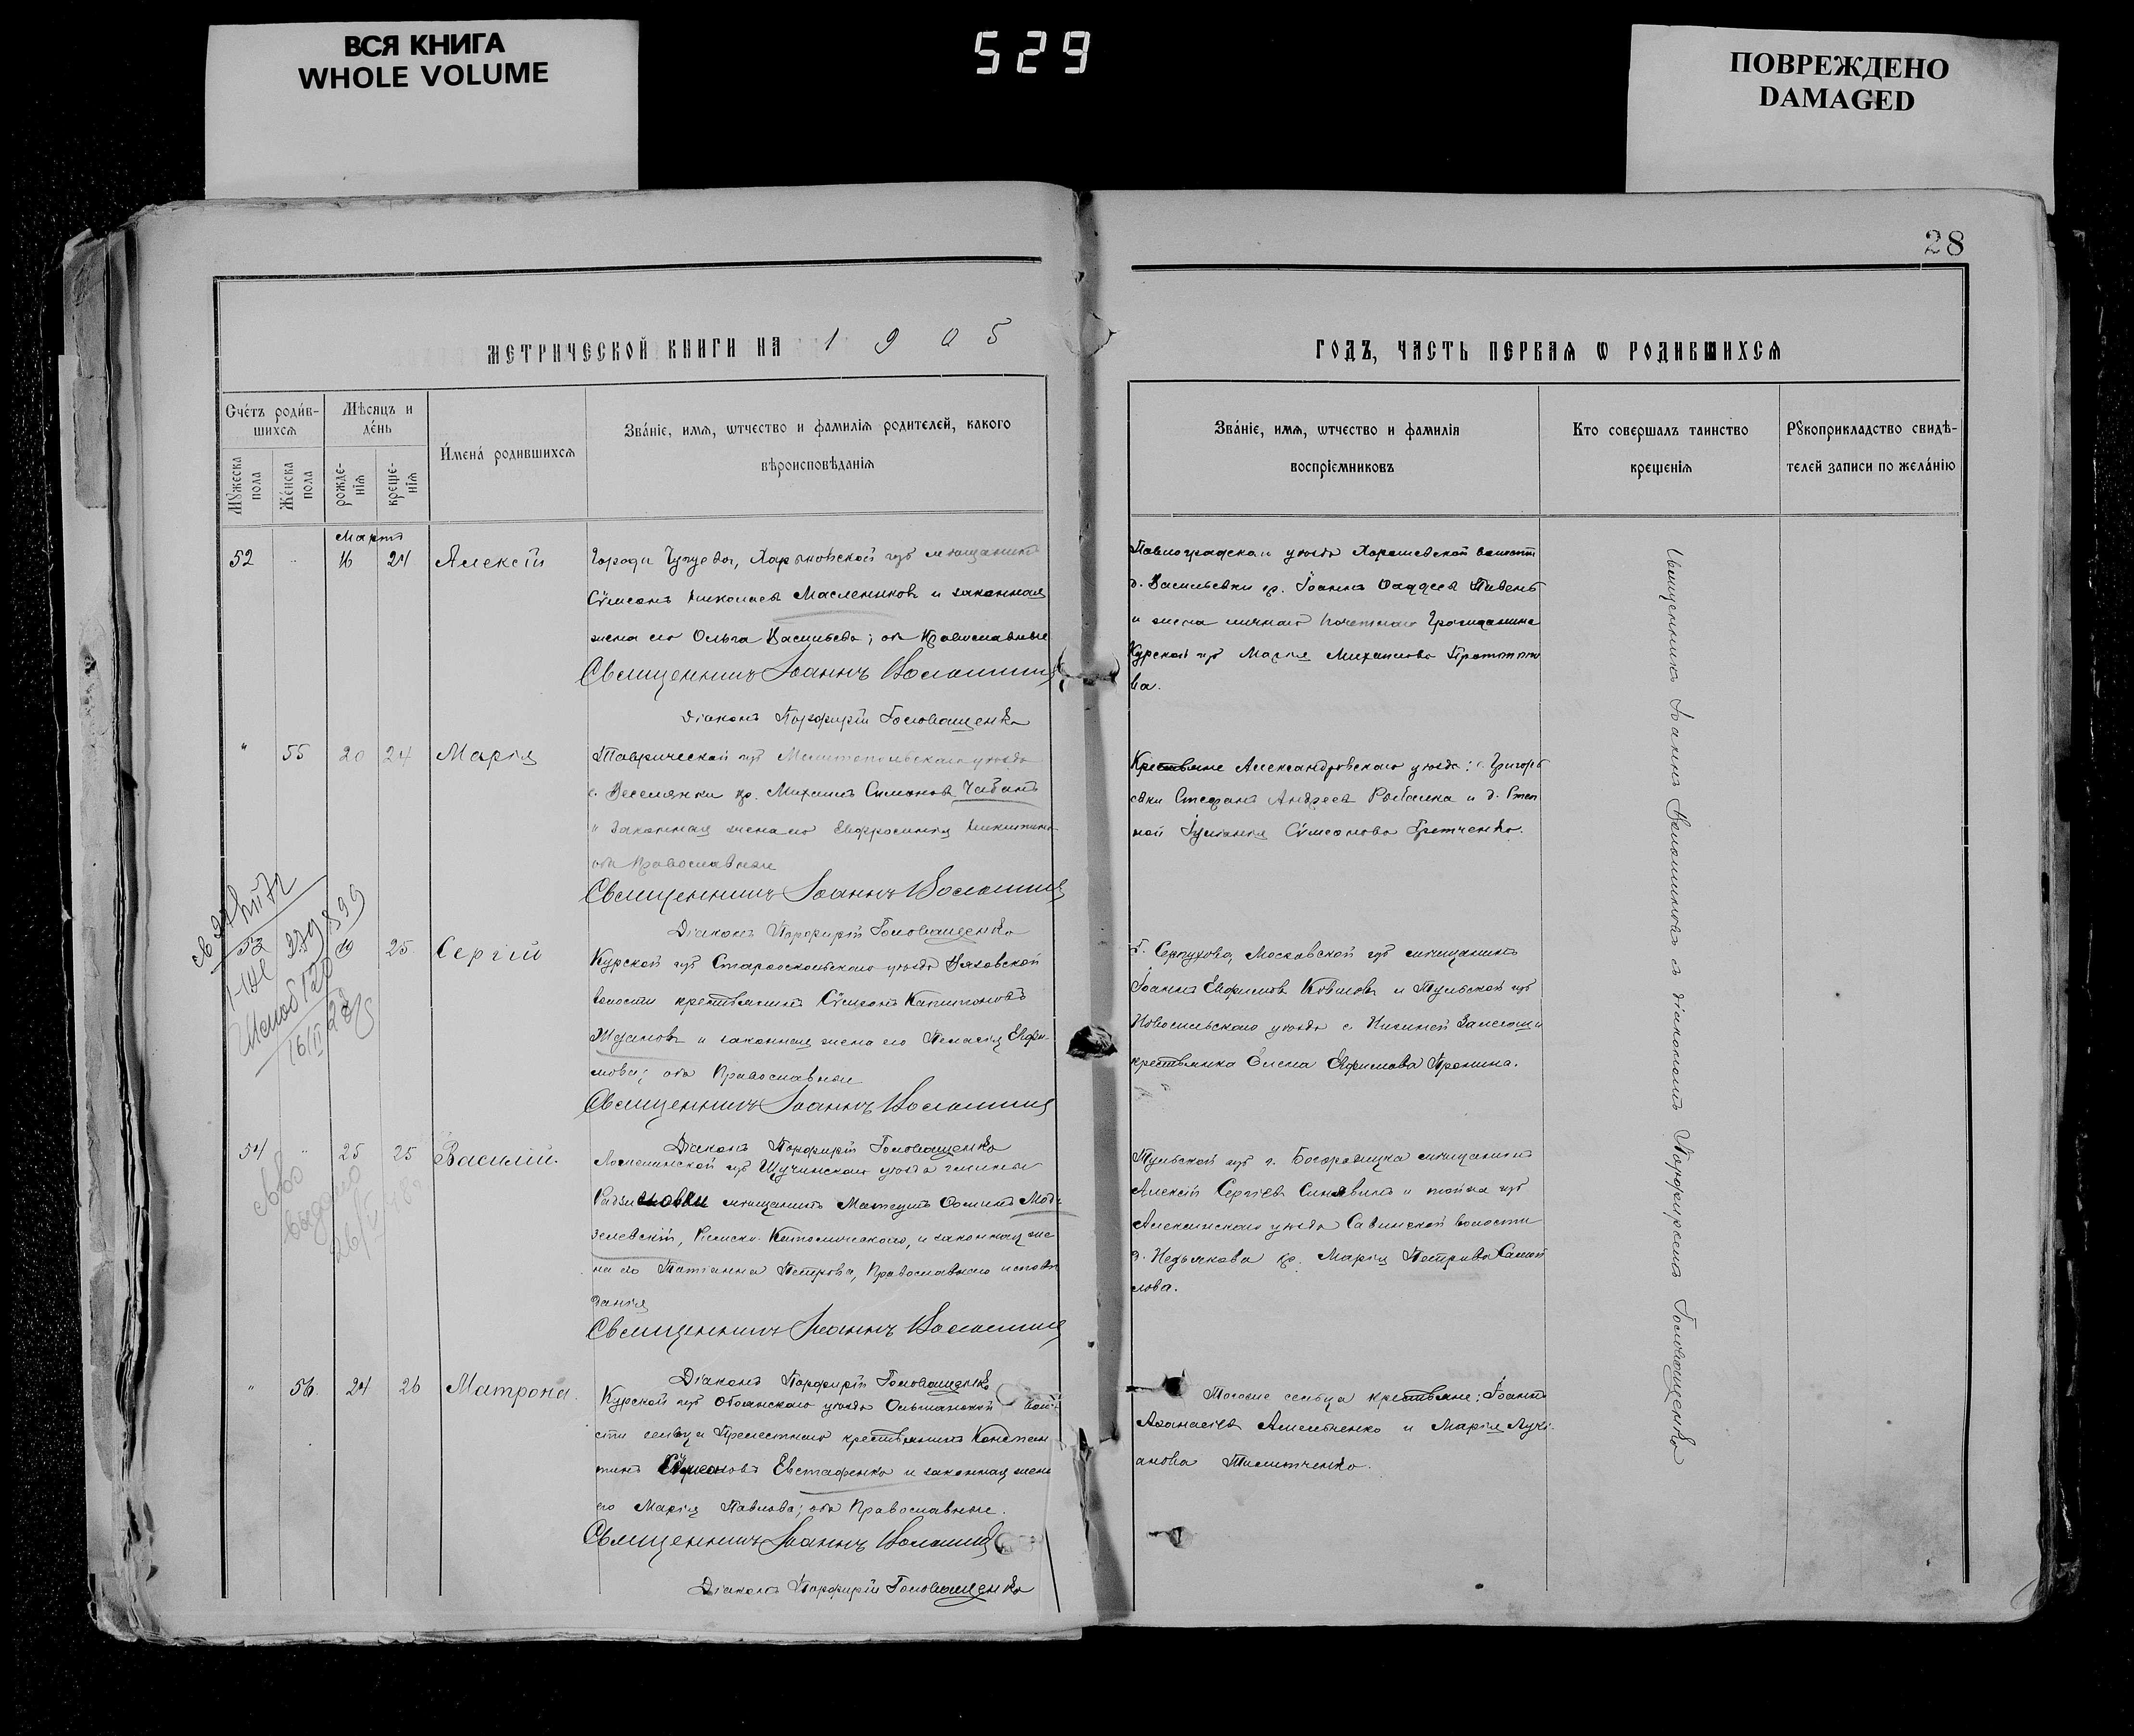 ВСЯ КНИГА
WHOLE VOLUME
529
ПОВРЕЖДЕНО
DAMAGED
28
МЕТРИЧЕСКОЙ КНИГИ НА 1905
ГОДЪ, ЧАСТЬ ПЕРВАѦ Ѡ РОДИВШИХСѦ
Счетъ родившихсѧ
Мѹжеска пола
Женска пола
Мѣсяцъ и день
рожденіѧ
крещенїѧ
Имена родившихсѧ
Званіе, имѧ, ѡтчество и фамиліѧ родителей, какого
вѣроисповѣданіѧ
Званіе, имѧ, ѡтчество и фамиліѧ
воспріемниковъ
Кто совершалъ таинство
крещеніѧ
Рѹкоприкладство свидѣ-
телей записи по желанію
Мартъ
52 " 16 24 Алексій
Города Чугуева, Харьковской губ мѣщанинъ
Сѵмеонъ Николаевъ Маслениковъ и законная
жена его Ольга Васильева; оба Православные
Священникъ Іоаннъ
Діаконъ Порфирій Головащенко
Павлоградскаго уѣзда Хорошевской волости
д. Васильевки кр. Іоаннъ Фаддеевъ Пивень
и жена личнаго Почетнаго Гражданина
Курской губ Марія Михаилова
ва.
" 55 20 24 Марія
Таврической губ Мелитопольскаго уѣзда
с. Веселянки кр. Михаилъ Симоновъ Чабанъ
и законная жена его Евфросинія Никитина
оба Православные
Священникъ Іоаннъ
Діаконъ Порфирій Головащенко
Крестьяне Александровскаго уѣзда: с. Григорь
евки Стефанъ Андреевъ и д. Степ
ной Іуліанія Сѵмеонова Гретченко.
53
25 Сергій
Курской губ Старооскольскаго уѣзда
волости крестьянинъ Сѵмеонъ Капитоновъ
Ждановъ и законная жена его Пелагія Евфи-
мова; оба Православные
Священникъ Іоаннъ
Діаконъ Порфирій Головащенко
г. Серпухова, Московской губ мѣщанинъ
Іоаннъ Евфимовъ и Тульской губ
Новосильскаго уѣзда с Нижней Залегощи
крестьянка Елена Евфимова Пронина.
54 " 25 25 Василій.
выдано
Ломжинской губ Щучинскаго уѣзда гмины
мѣщанинъ
зелевскій, Римско-Католическаго, и законная же
на его Татіанна Петрова, Православнаго исповѣ
данія
Священникъ Іоаннъ
Діаконъ Порфирій Головащенко
Тульской губ г. Богородицка мѣщанинъ
Алексій Сергіевъ Синявинъ и той же губ
Алексинскаго уѣзда Савинской волости
д. кр. Марія Петрова Самой
лова.
" 56. 24 26 Матрона.
Курской губ Обоянскаго уѣзда Ольшанской воло
сти сельца Прелестнаго крестьянинъ Констан
тинъ Сѵмеоновъ Евстафенко и законная жена
его Марія Павлова; оба Православные.
Священникъ Іоаннъ
Діаконъ Порфирій Головащенко
Тогоже сельца крестьяне: Іоаннъ
Аѳанасіевъ и Марія Луки-
анова
Священникъ Іоаннъ съ діакономъ Порфиріемъ Головащенко